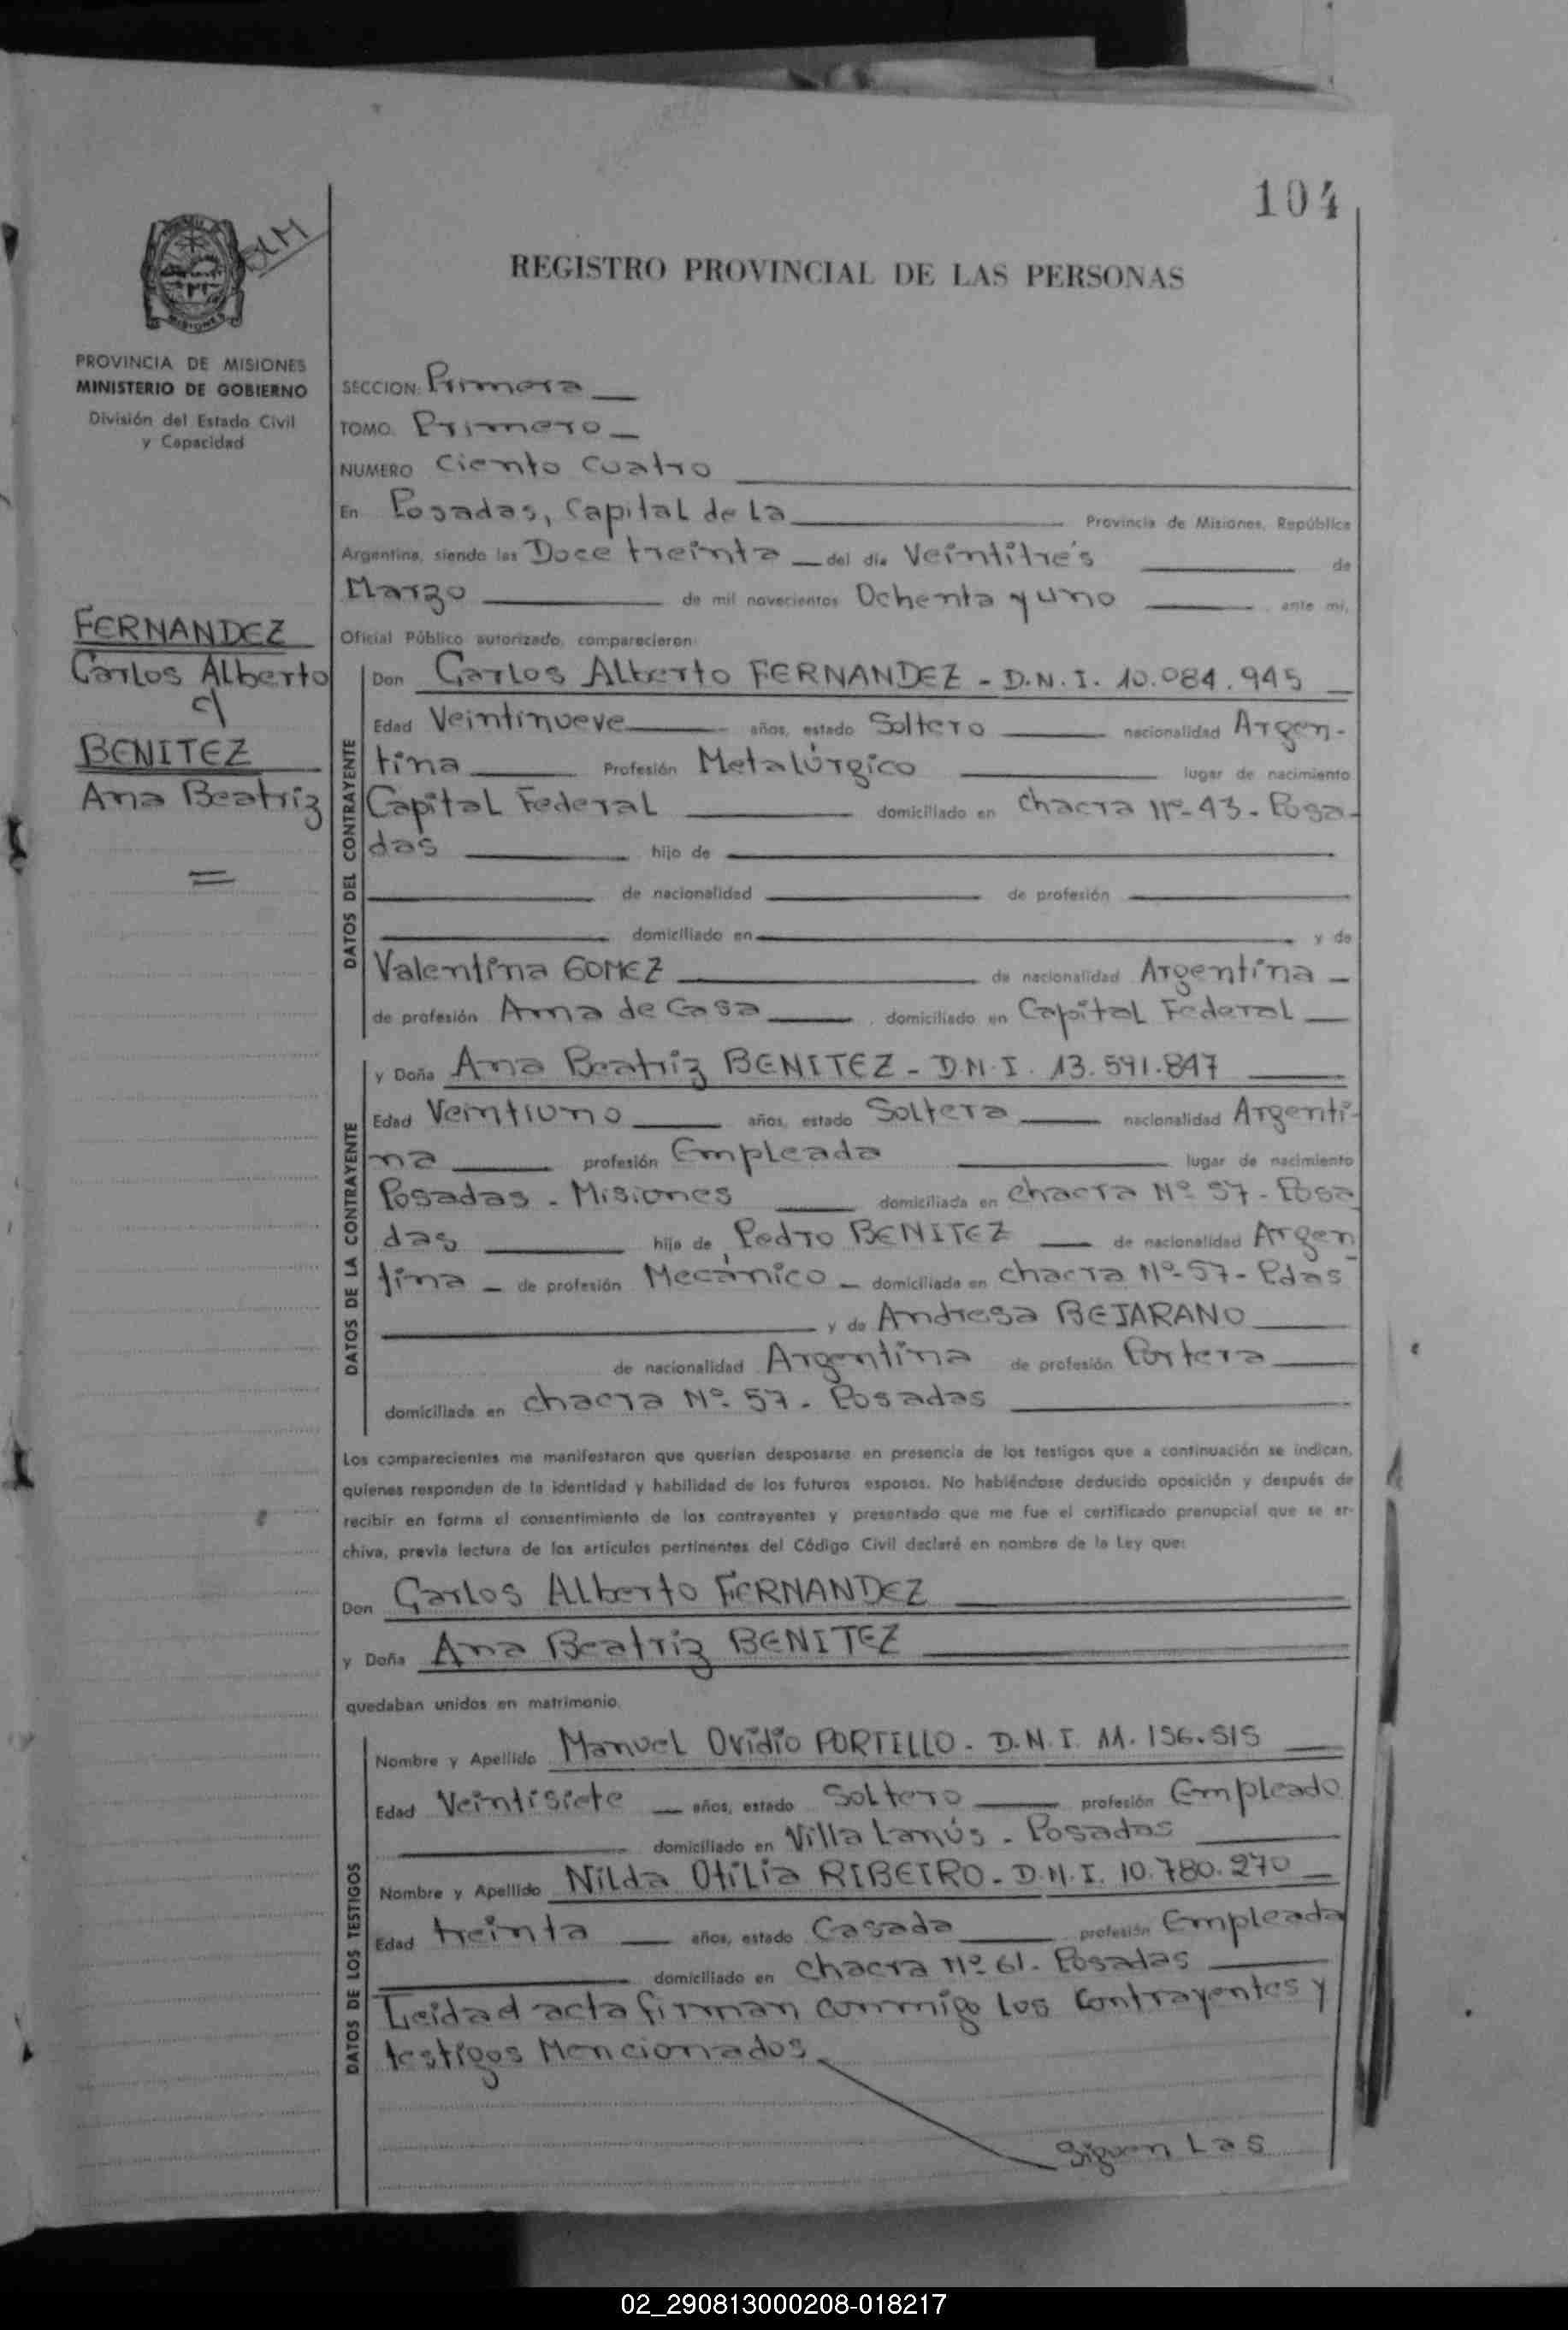 104
BLM
REGISTRO PROVINCIAL DE LAS PERSONAS
MISIONES
PROVINCIA DE MISIONES
MINISTERIO DE GOBIERNO
División del Estado Civil
y Capacidad
FERNANDEZ
Carlos Alberto
c/
BENITEZ
Ana Beatriz
SECCION: Primera
TOMO Primero
NUMERO Ciento Cuatro
En Posadas, Capital de La Provincia de Misiones, República
Argentina, siendo las Doce treinta del día Veintitrés de
Marzo de mil novecientos Ochenta y uno ante mí,
Oficial Público autorizado, comparecieron:
DATOS DEL CONTRAYENTE
Don Carlos Alberto FERNANDEZ - D.N.I. 10.084.945
Edad Veintinueve años, estado Soltero nacionalidad Argen-
tina Profesión Metalúrgico lugar de nacimiento
Capital Federal domiciliado en chacra Nº 43 - Posa-
das hijo de
de nacionalidad de profesión
domiciliado en y de
Valentina GOMEZ de nacionalidad Argentina
de profesión Ama de Casa domiciliado en Capital Federal
DATOS DE LA CONTRAYENTE
y Doña Ana Beatriz BENITEZ - D.N.I. 13.591.847
Edad Veintiuno años, estado Soltera nacionalidad Argenti-
na profesión Empleada lugar de nacimiento
Posadas - Misiones domiciliada en chacra Nº 57 - Posa
das hija de Pedro BENITEZ de nacionalidad Argen
tina - de profesión Mecánico - domiciliado en chacra Nº 57 - Pdas
y de Andresa BEJARANO
de nacionalidad Argentina de profesión Portera
domiciliada en chacra Nº 57 - Posadas
Los comparecientes me manifestaron que querían desposarse en presencia de los testigos que a continuación se indican,
quienes responden de la identidad y habilidad de los futuros esposos. No habiéndose deducido oposición y después de
recibir en forma el consentimiento de los contrayentes y presentado que me fue el certificado prenupcial que se ar-
chiva, previa lectura de los artículos pertinentes del Código Civil declaré en nombre de la Ley que:
Don Carlos Alberto FERNANDEZ
y Doña Ana Beatriz BENITEZ
quedaban unidos en matrimonio.
DATOS DE LOS TESTIGOS
Nombre y Apellido Manuel Ovidio PORTILLO - D.N.I. 11.156.515
Edad Veintisiete años, estado Soltero profesión Empleado
domiciliado en Villa Lanús - Posadas
Nombre y Apellido Nilda Otilia RIBEIRO - D.N.I. 10.780.270
Edad treinta años, estado Casada profesión Empleada
domiciliado en chacra Nº 61 - Posadas
Leidad acta firman conmigo Los Contrayentes y
testigos Mencionados
Siguen Las
02_290813000208-018217